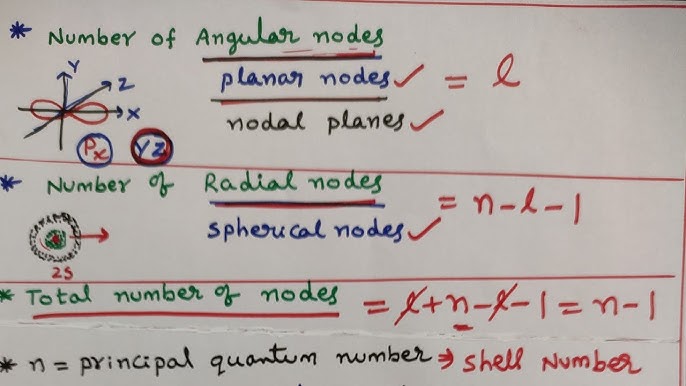 * Number of Angular nodes
planar nodes ✓ = l
nodal planes ✓
Y
Z
X
Px YZ
* Number of Radial nodes
= n-l-1
spherical nodes ✓
2S
* Total number of nodes = l+n-l-1 = n-1
* n = principal quantum number ⇒ Shell Number